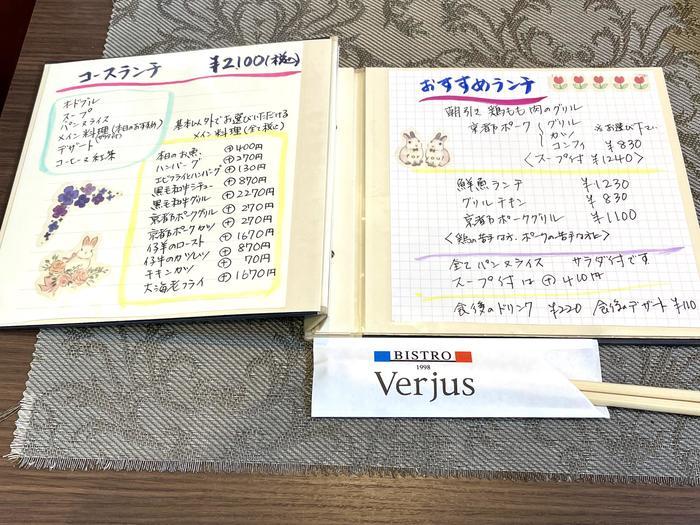 コースランチ ¥2100(税込)
オードブル
スープ
パン又ライス
メイン料理(本日のおすすめ)
デザート
コーヒー又紅茶
基本以外でお選びいただける
メイン料理(全て税込)
本日のお魚 ⊕400円
ハンバーグ ⊕270円
エビフライとハンバーグ ⊕130円
黒毛和牛シチュー ⊕870円
黒毛和牛グリル ⊕2270円
京都ポークグリル ⊕270円
京都ポークカツ ⊕270円
仔羊のロースト ⊕1670円
仔牛のカツレツ ⊕870円
チキンカツ ⊕70円
大海老フライ ⊕1670円
おすすめランチ
朝引き 鶏もも肉のグリル
京都ポーク グリル
カツ
コンフィ
※お選び下さい
¥830
<スープ付 ¥1240>
for you!
鮮魚ランチ ¥1230
グリルチキン ¥830
京都ポークグリル ¥1100
<鶏の苦手な方、ポークの苦手な方に>
全てパン又ライス サラダ付です
スープ付は ⊕410円
食後のドリンク ¥220 食後のデザート ¥110
BISTRO
1998
Verjus